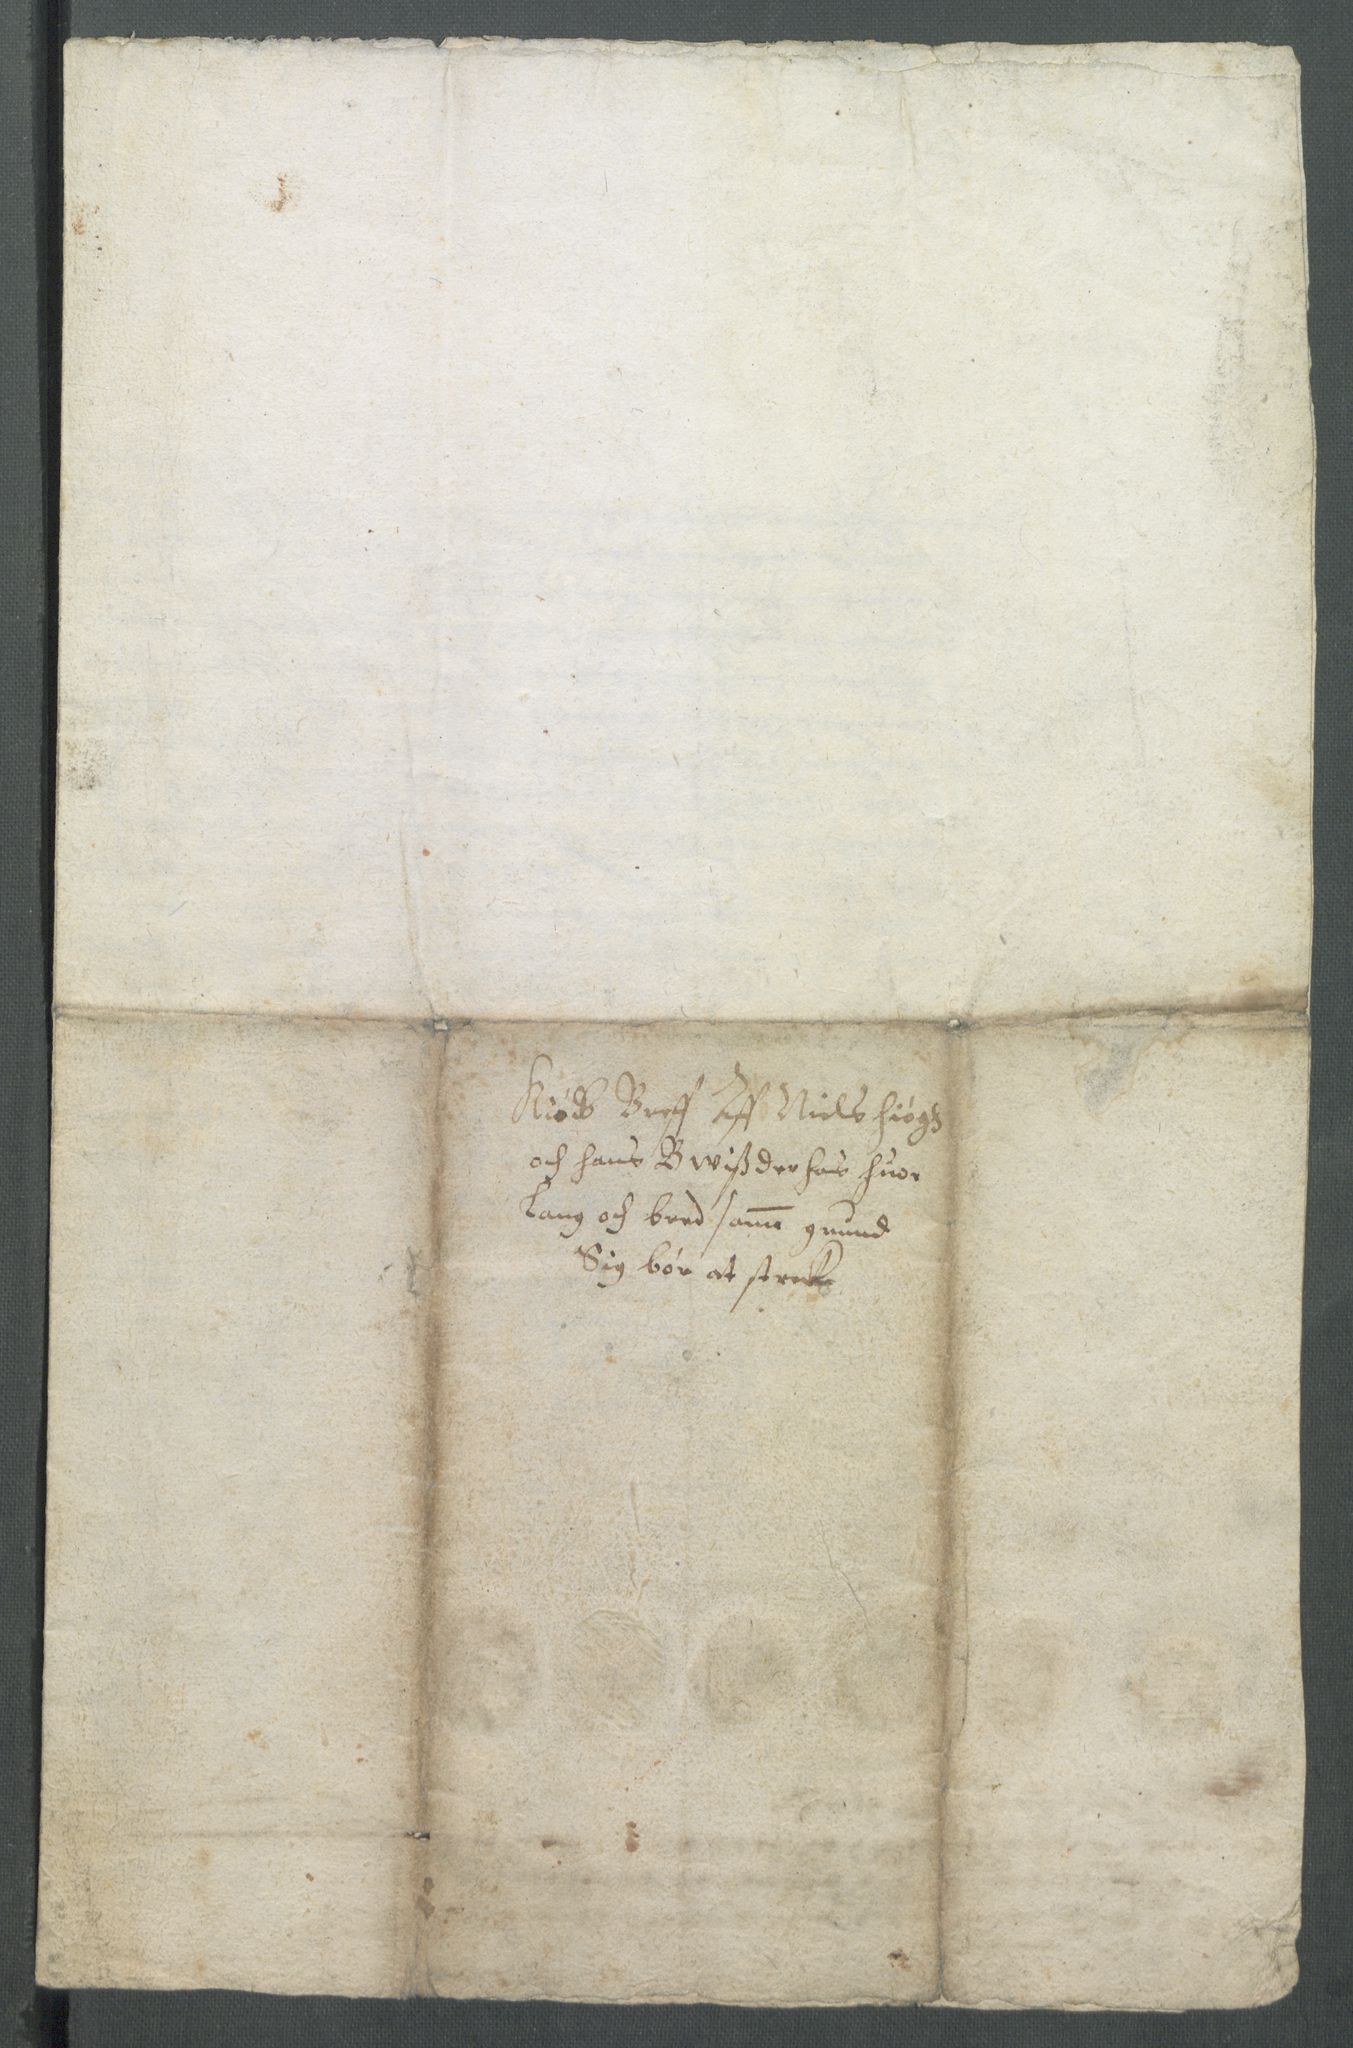 Kiøb Breff Aff Niels hiøgh
och hans Bwißder hos huor
Lang och bred samme grund
Sig bør at strecke